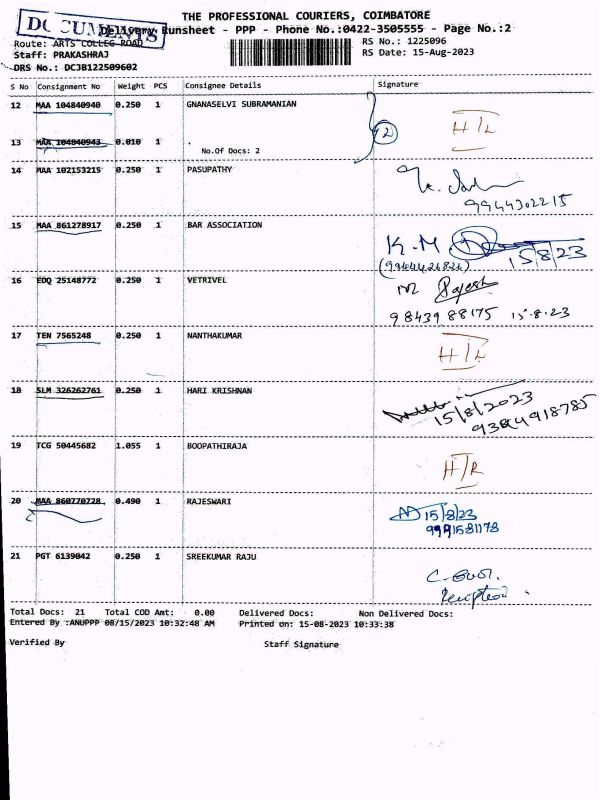 THE PROFESSIONAL COURIERS, COIMBATORE
DOCUMENTS
Delivery Runsheet - PPP - Phone No.:0422-3505555 - Page No.:2
Route: ARTS COLLEG ROAD
RS No.: 1225096
Staff: PRAKASHRAJ
RS Date: 15-Aug-2023
DRS No.: DCJB122509602
S No Consignment No Weight PCS Consignee Details Signature
12 MAA 104840940 0.250 1 GNANASELVI SUBRAMANIAN
2
H/L
13 MAA 104840943 0.010 1 .
No.Of Docs: 2
14 MAA 102153215 0.250 1 PASUPATHY
9944302215
15 MAA 861278917 0.250 1 BAR ASSOCIATION
K.M.
15/8/23
16 EDQ 25148772 0.250 1 VETRIVEL
M Rajesh
9843988175 15.8.23
17 TEN 7565248 0.250 1 NANTHAKUMAR
H/L
18 SLM 326262761 0.250 1 HARI KRISHNAN
15/8/2023
19 TCG 50445682 1.055 1 BOOPATHIRAJA
H/R
20 MAA 860770728 0.490 1 RAJESWARI
15/8/23
21 PGT 6139042 0.250 1 SREEKUMAR RAJU
Total Docs: 21 Total COD Amt: 0.00 Delivered Docs: Non Delivered Docs:
Entered By :ANUPPP 08/15/2023 10:32:48 AM Printed on: 15-08-2023 10:33:38
Verified By Staff Signature